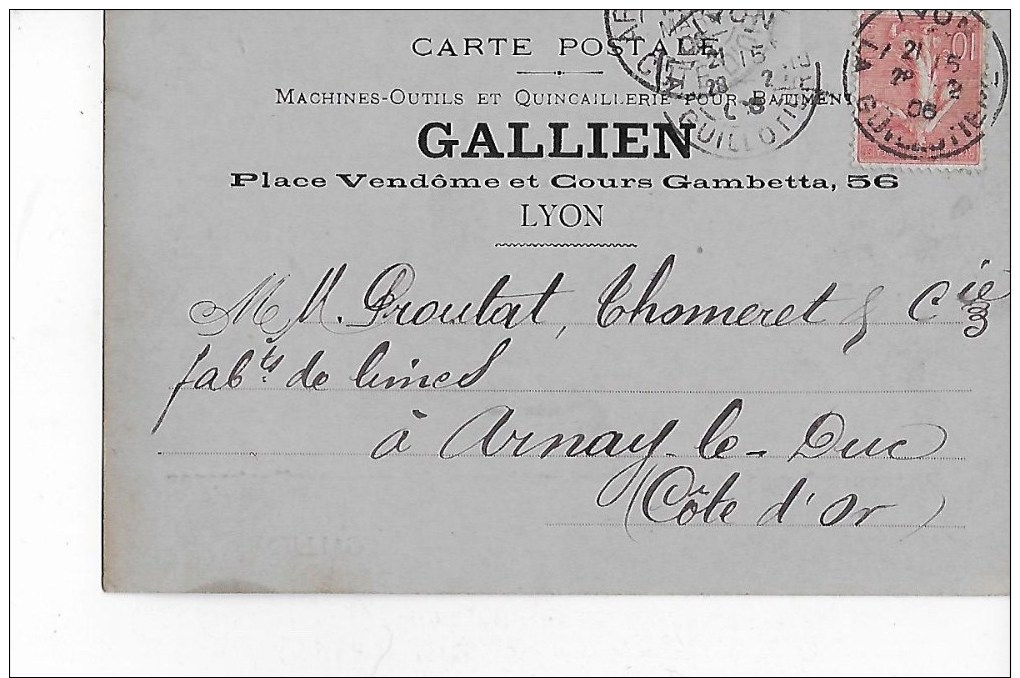 CARTE POSTALE
MACHINES-OUTILS ET QUINCAILLERIE POUR BATIMENT
GALLIEN
Place Vendôme et Cours Gambetta, 56
LYON
M.M. Proutat, Thomeret & Cie
fabts de limes
à Arnay-le-Duc
(Côte d'Or)
LYON
LA GUILLOTIÈRE
21 5
2
06
10